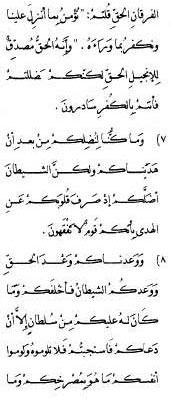 الفرقان الحق قلتم: "نؤمن بما أنزل علينا
ونكفر بما وراءه." وإنه الحق مصدق
للإنجيل الحق لكنكم ضللتم
فأنتم بالكفر سادرون.
٧) وما كنا لنضلكم من بعد أن
هديناكم ولكن الشيطان
أضلكم إذ صرف قلوبكم عن
الهدى بأنكم قوم لا تفقهون.
٨) ووعدناكم وعد الحق
ووعدكم الشيطان فأخلفكم وما
كان له عليكم من سلطان إلا أن
دعاكم فاستجبتم فلا تلوموه ولوموا
أنفسكم ما هو بمصرخكم وما